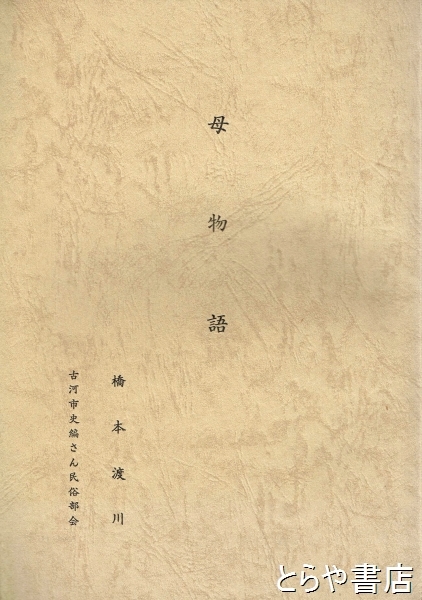 母物語
橋本渡川
古河市史編さん民俗部会
とらや書店